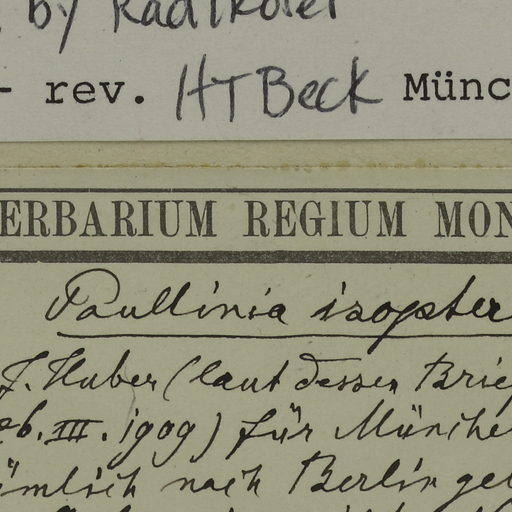 by Radlkofer
- rev. HT Beck Münc
ERBARIUM REGIUM MON
Paullinia isopter
J. Huber (laut dessen Brief
eb. III. 1909) für München
ümlich nach Berlin ge